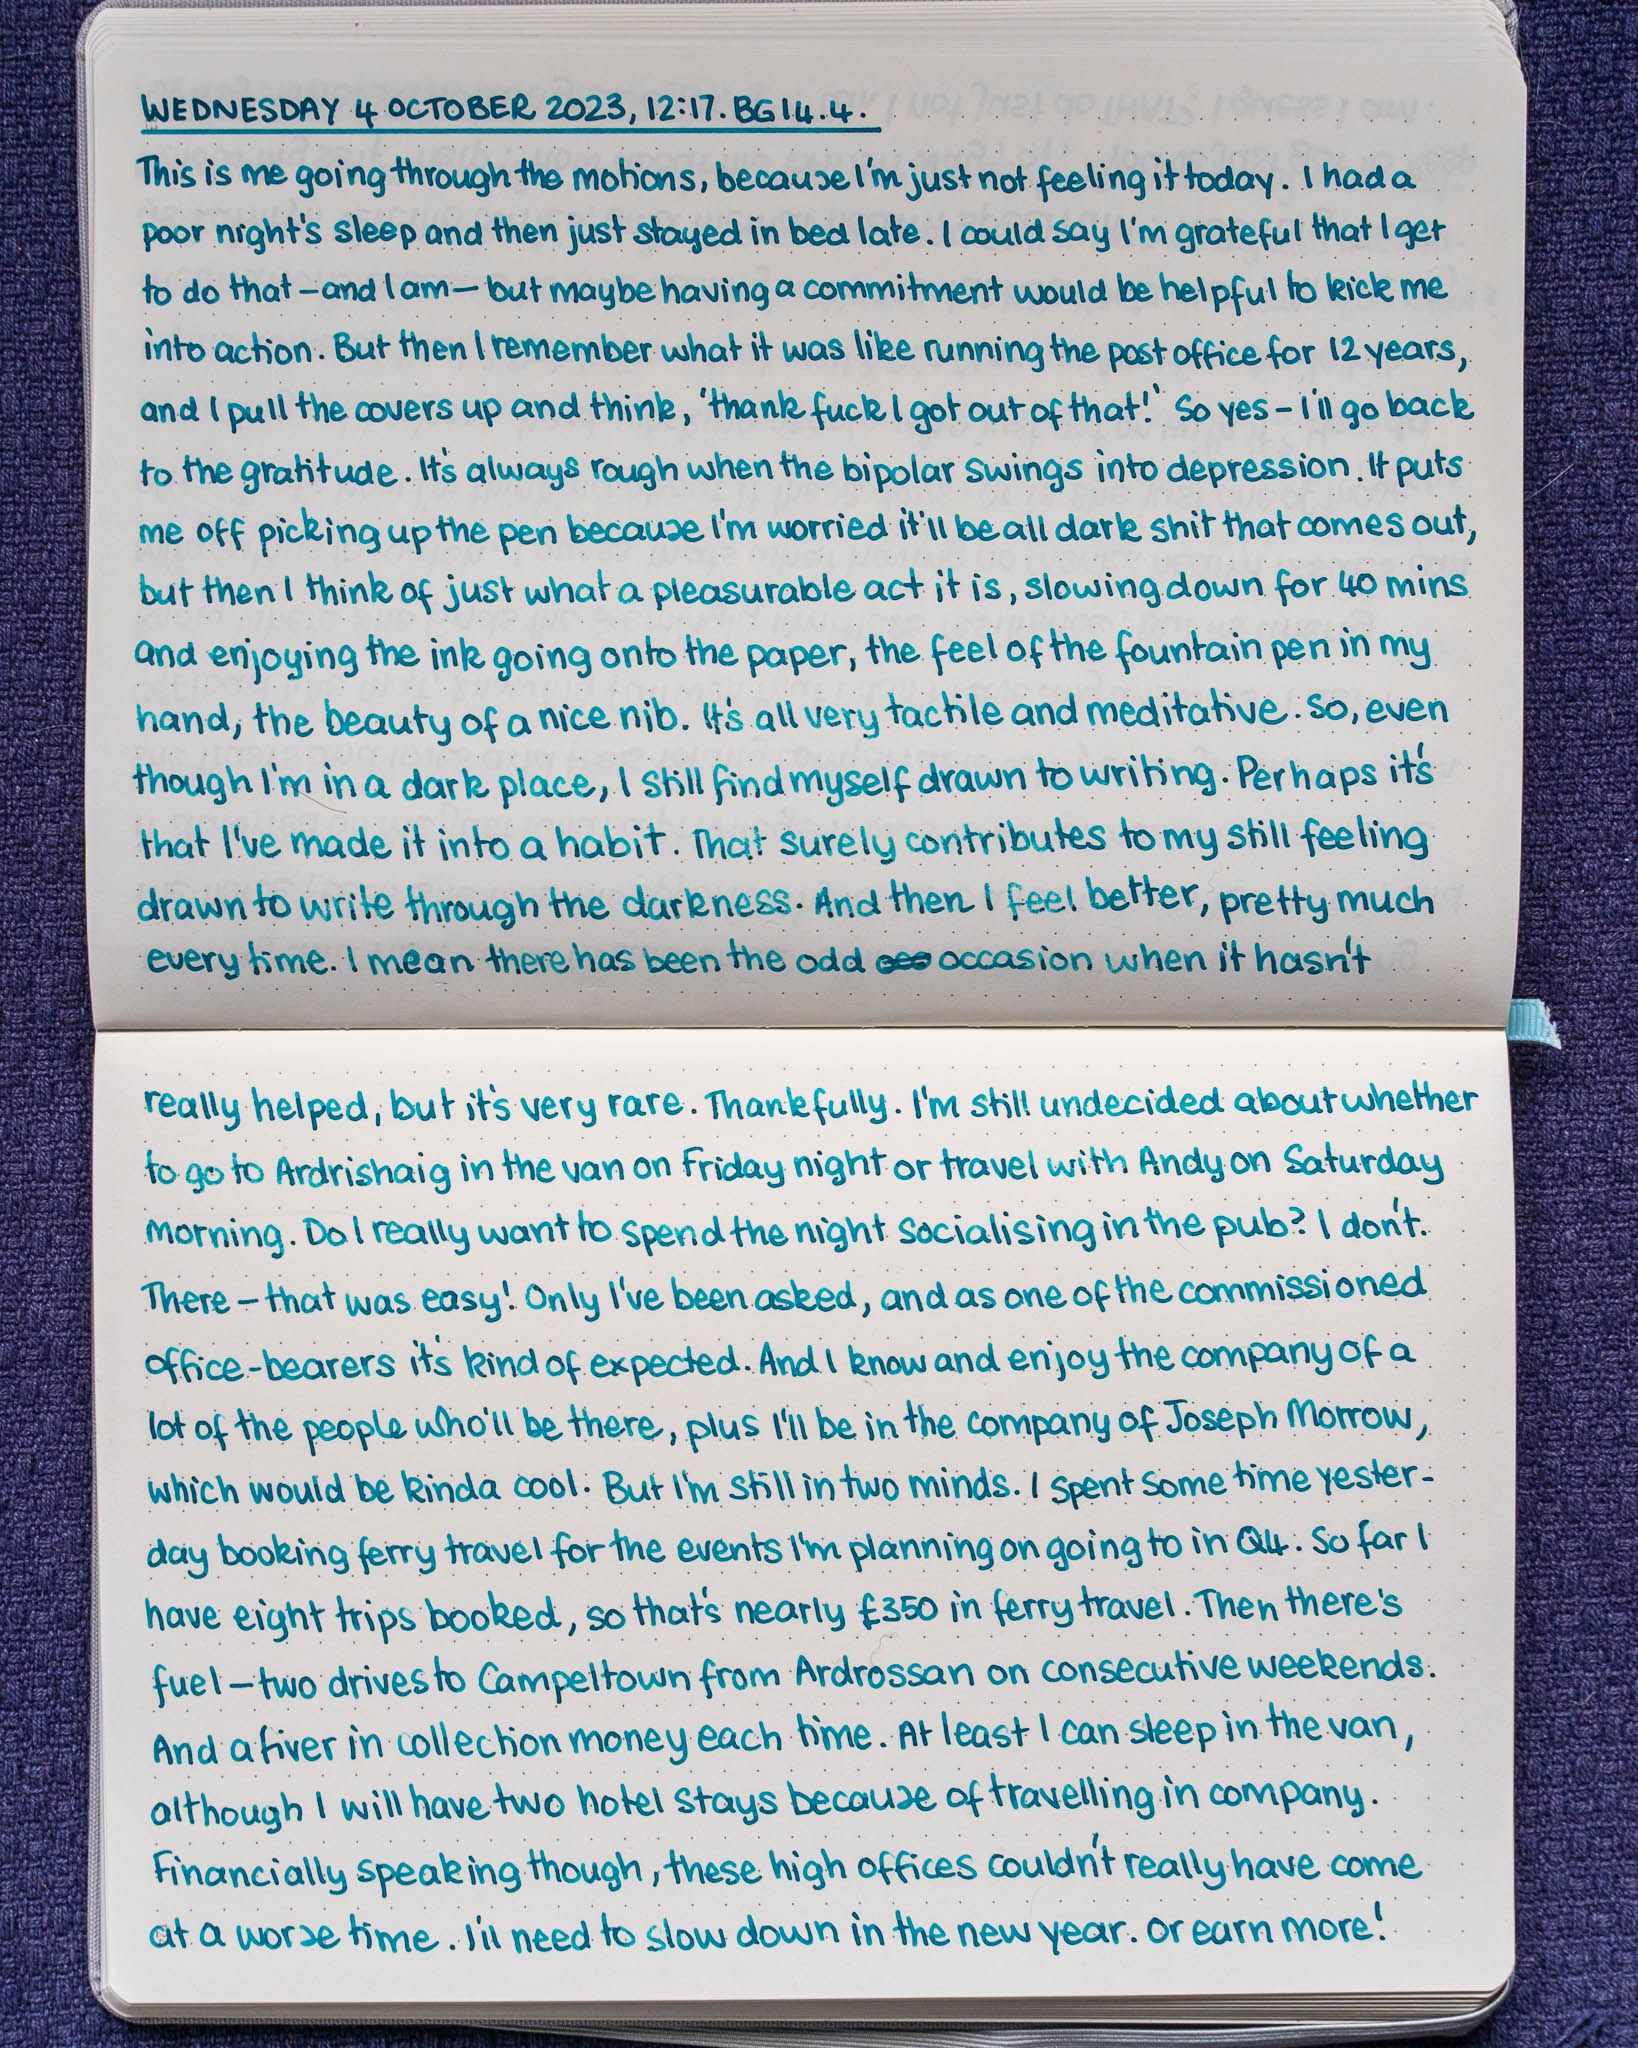 WEDNESDAY 4 OCTOBER 2023, 12:17. BG14.4.
This is me going through the motions, because I'm just not feeling it today. I had a
poor night's sleep and then just stayed in bed late. I could say I'm grateful that I get
to do that – and I am – but maybe having a commitment would be helpful to kick me
into action. But then I remember what it was like running the post office for 12 years,
and I pull the covers up and think, 'thank fuck I got out of that!' So yes – I'll go back
to the gratitude. It's always rough when the bipolar swings into depression. It puts
me off picking up the pen because I'm worried it'll be all dark shit that comes out,
but then I think of just what a pleasurable act it is, slowing down for 40 mins
and enjoying the ink going onto the paper, the feel of the fountain pen in my
hand, the beauty of a nice nib. It's all very tactile and meditative. So, even
though I'm in a dark place, I still find myself drawn to writing. Perhaps it's
that I've made it into a habit. That surely contributes to my still feeling
drawn to write through the darkness. And then I feel better, pretty much
every time. I mean there has been the odd occasion when it hasn't
really helped, but it's very rare. Thankfully. I'm still undecided about whether
to go to Ardrishaig in the van on Friday night or travel with Andy on Saturday
morning. Do I really want to spend the night socialising in the pub? I don't.
There – that was easy! Only I've been asked, and as one of the commissioned
office-bearers it's kind of expected. And I know and enjoy the company of a
lot of the people who'll be there, plus I'll be in the company of Joseph Morrow,
which would be kinda cool. But I'm still in two minds. I spent some time yester-
day booking ferry travel for the events I'm planning on going to in Q4. So far I
have eight trips booked, so that's nearly £350 in ferry travel. Then there's
fuel – two drives to Campeltown from Ardrossan on consecutive weekends.
And a fiver in collection money each time. At least I can sleep in the van,
although I will have two hotel stays because of travelling in company.
Financially speaking though, these high offices couldn't really have come
at a worse time. I'll need to slow down in the new year. Or earn more!